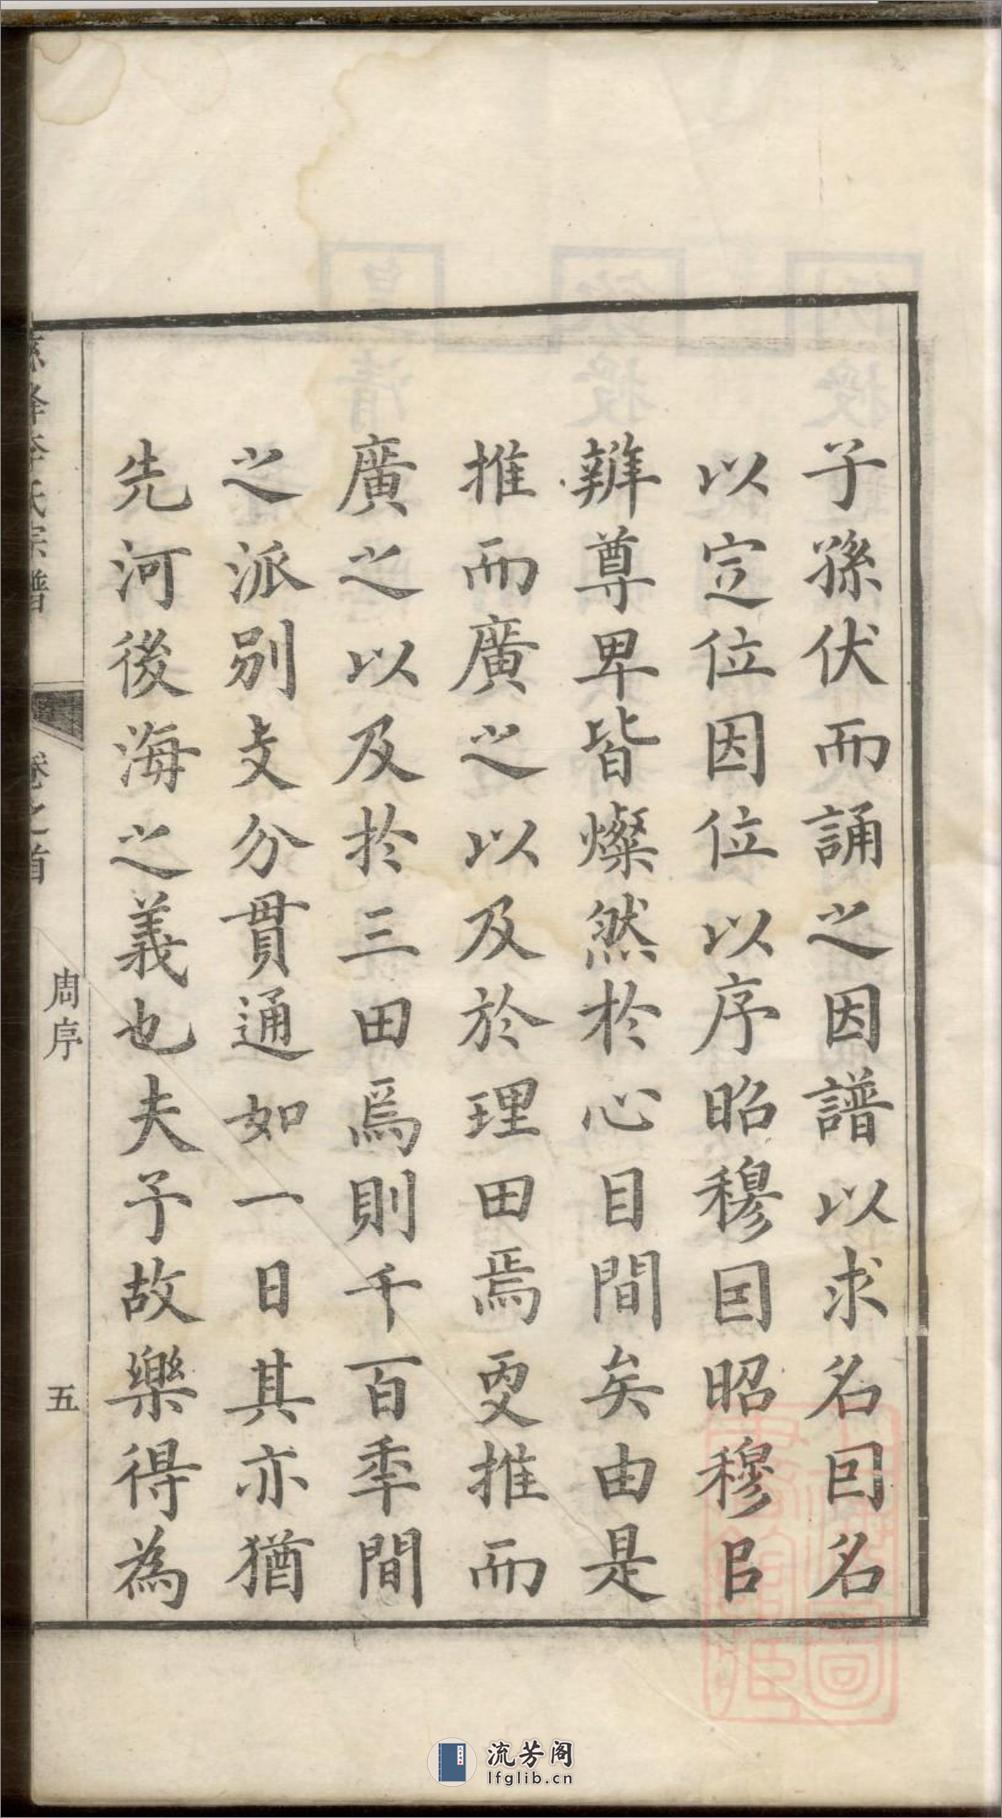 子孫伏而誦之因譜以求名囙名
以定位因位以序昭穆囙昭穆㠯
辨尊卑皆燦然扵心目間矣由是
推而廣之以及於理田焉更推而
廣之以及扵三田焉則千百秊間
之派别支分貫通如一日其亦猶
先河後海之義也夫予故樂得為
氏宗譜
卷之首
周序
五
流芳阁
lfglib.cn